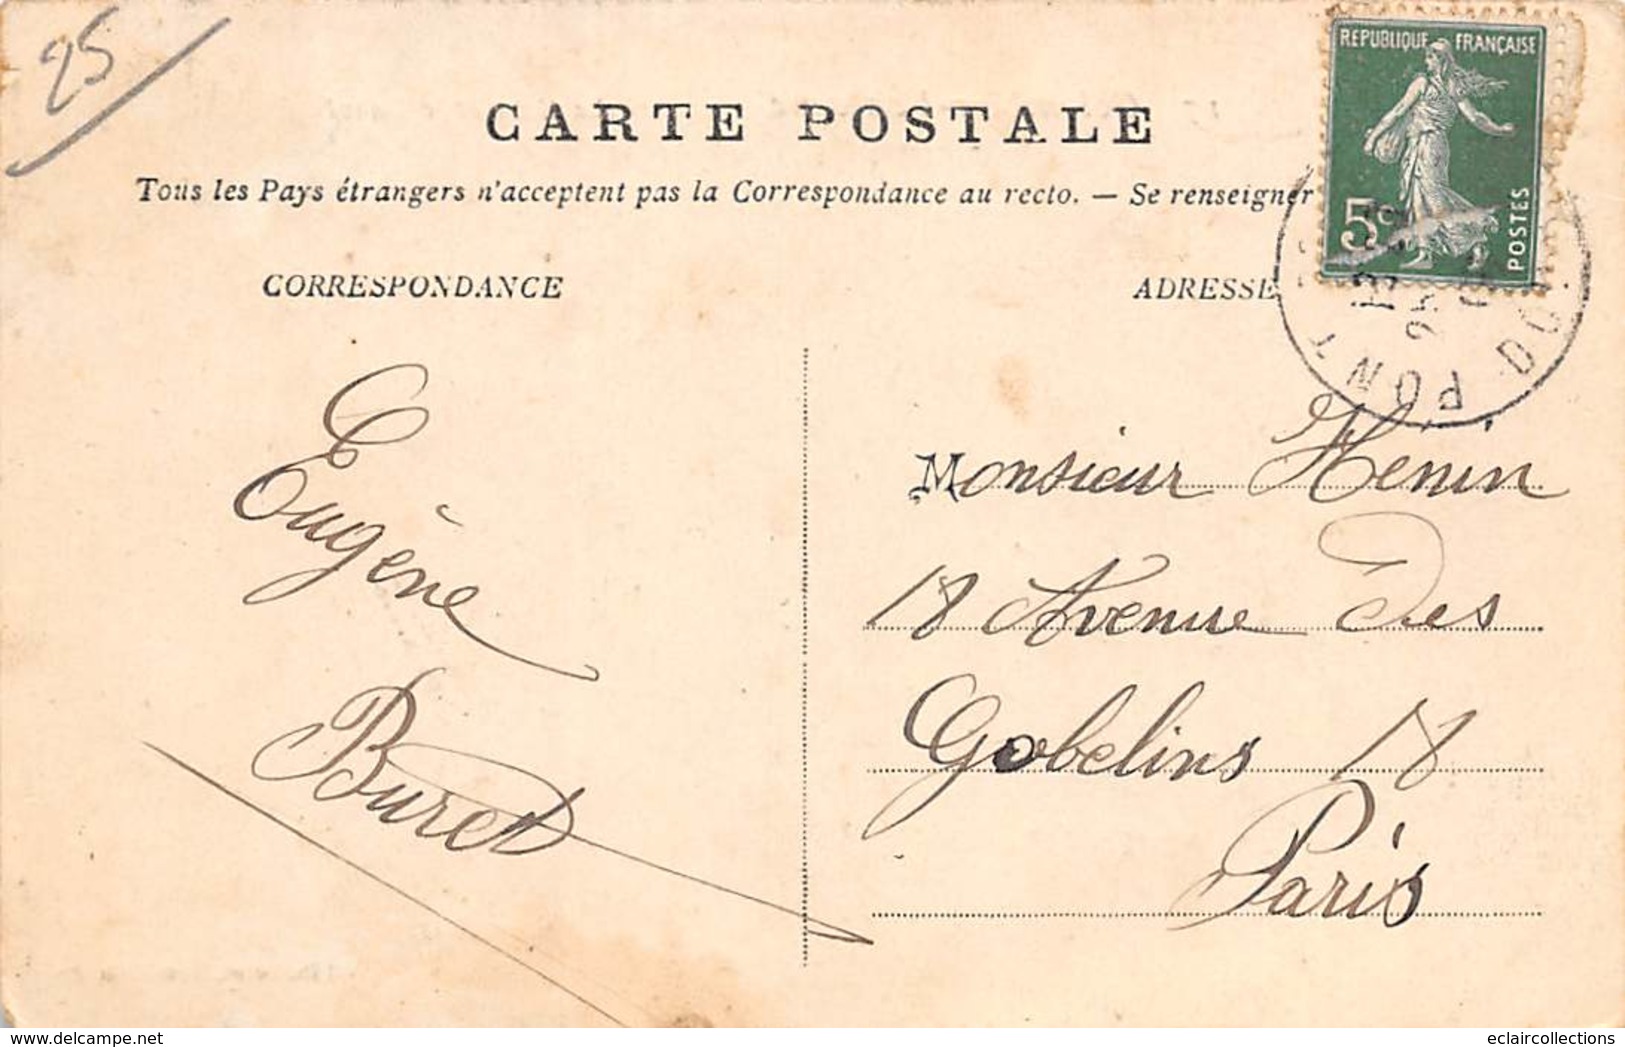 25
CARTE POSTALE
Tous les Pays étrangers n'acceptent pas la Correspondance au recto. — Se renseigner
REPUBLIQUE FRANÇAISE
5c
POSTES
PONT
CORRESPONDANCE
ADRESSE
Eugène
Buret
Monsieur Henin
18 Avenue des
Gobelins 18
Paris
eclaircollections